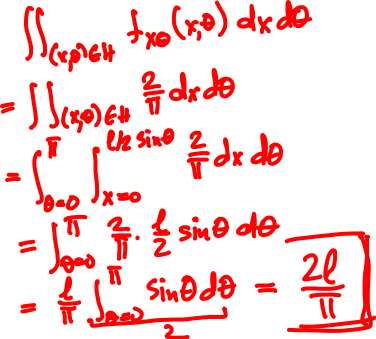 ∬_{(x,θ)∈H} f_{xθ}(x,θ) dx dθ
= ∬_{(x,θ)∈H} 2/π dx dθ
= ∫_{θ=0}^{π} ∫_{x=0}^{ℓ/2 sinθ} 2/π dx dθ
= ∫_{θ=0}^{π} 2/π · ℓ/2 sinθ dθ
= ℓ/π ∫_{θ=0}^{π} sinθ dθ = 2ℓ/π
2